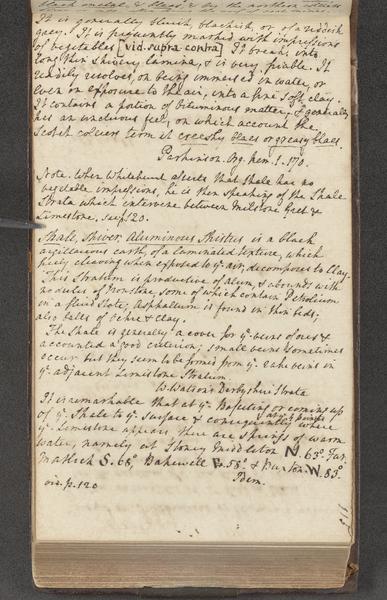 black metal, & &
It is generally bluish, blackish, or of a reddish
grey. It is frequently marked with impressions
of vegetables [vid. supra contra] It breaks into
long thin shivery lamina, & is very friable. It
readily resolves, on being immersed in water, or
even on exposure to the air, into a fine soft clay.
It contains a portion of bituminous matter, & generally
has an unctuous feel, on which account the
Scotch colliers term it creeshy blaes or greasy blaes.
Parkinson. Org. Rem. 1. 170.
Note. When Whitehurst asserts that Shale has no
vegetable impressions, he is then speaking of the Shale
Strata which intervene between Milstone Grit & ye
Limestone, see p. 120.
Shale, Shiver, Aluminous Shistus is a black
argillaceous earth, of a laminated texture, which
freely cleaving when exposed to ye air, decomposes to Clay.
This Stratum is productive of alum, & abounds with
nodules of Ironstone, some of which contain Petroleum
in a fluid state; Asphaltum is found in thin beds.
also balls of ochre & clay.
The Shale is generally a cover for ye veins of ores &
accounted a good criterion; small veins sometimes
occur but they seem to be formed from ye rake veins in
ye adjacent Limestone Stratum
W. Watson's Derbyshire Strata
It is remarkable that at ye Basseting or coming up
of ye Shale to ye Surface & consequently where
ye Limestone appears there are springs of warm
water, namely at Stoney Middleton N. 63° Far.
Matlock S. 68°, Bakewell 58° & Buxton W. 83°
Idem.
vid. p. 120